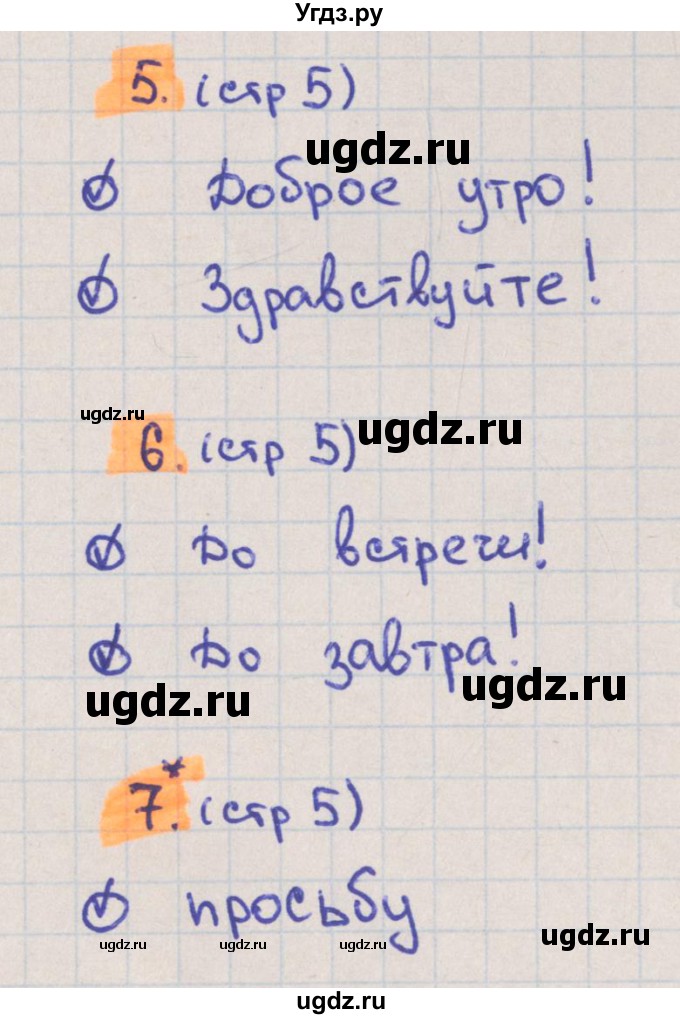 Угдз.ру
5. (стр 5)
ugdz.ru
Доброе утро!
Здравствуйте!
ugdz.ru
ugdz.ru
6. (стр 5)
До встречи!
До завтра!
ugdz.ru
ugdz.ru
7.* (стр 5)
просьбу
ugdz.ru ugdz.ru ugdz.ru
ugdz.ru
ugdz.ru